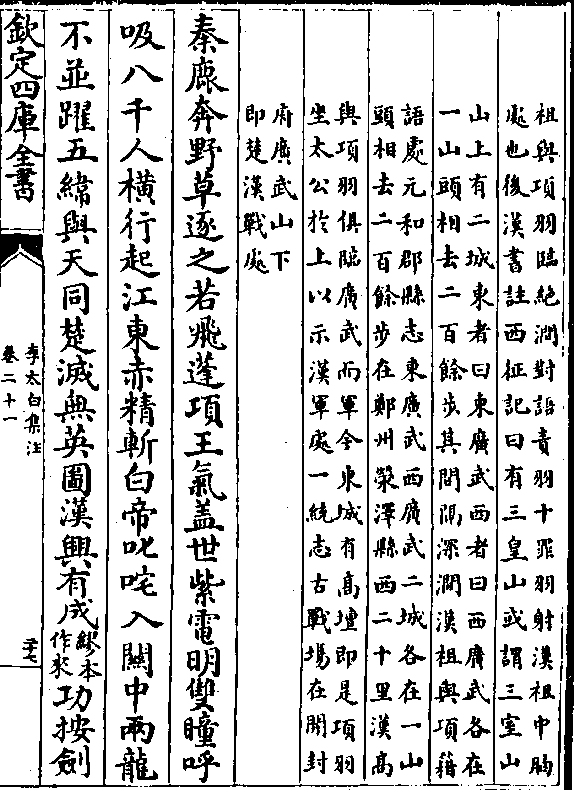 祖與項羽臨絶澗對語責羽十罪羽射漢祖中胸
處也後漢書註西征記曰有三皇山或謂三室山
山上有二城東者曰東廣武西者曰西廣武各在
一山頭相去二百餘步其間隔深澗漢祖與項籍
語處元和郡縣志東廣武西廣武二城各在一山
頭相去二百餘步在鄭州滎澤縣西二十里漢髙
與項羽俱臨廣武而軍今東城有髙壇即是項羽
坐太公於上以示漢軍處一統志古戰場在開封
府廣武山下
即楚漢戰處
秦鹿奔野草逐之若飛蓬項王氣盖世紫電明雙瞳呼
吸八千人橫行起江東赤精斬白帝叱咤入闗中兩龍
不並躍五緯與天同楚滅無英圖漢興有成繆本作來功按劍
欽定四庫全書
李太白集注
卷二十一